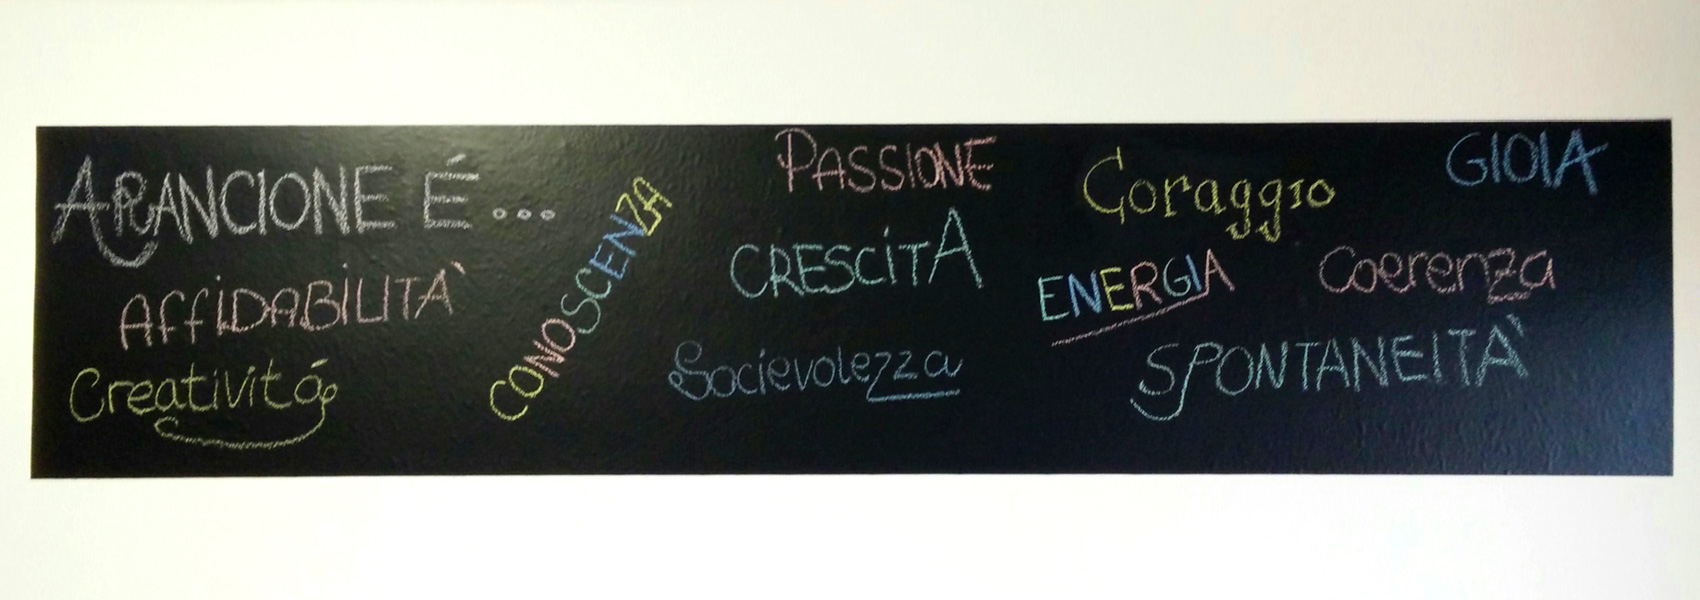 ARANCIONE É...
AFFIDABILITA'
Creativitá
CONOSCENZA
PASSIONE
CRESCITA
Socievolezza
Coraggio
GIOIA
ENERGIA
Coerenza
SPONTANEITÀ